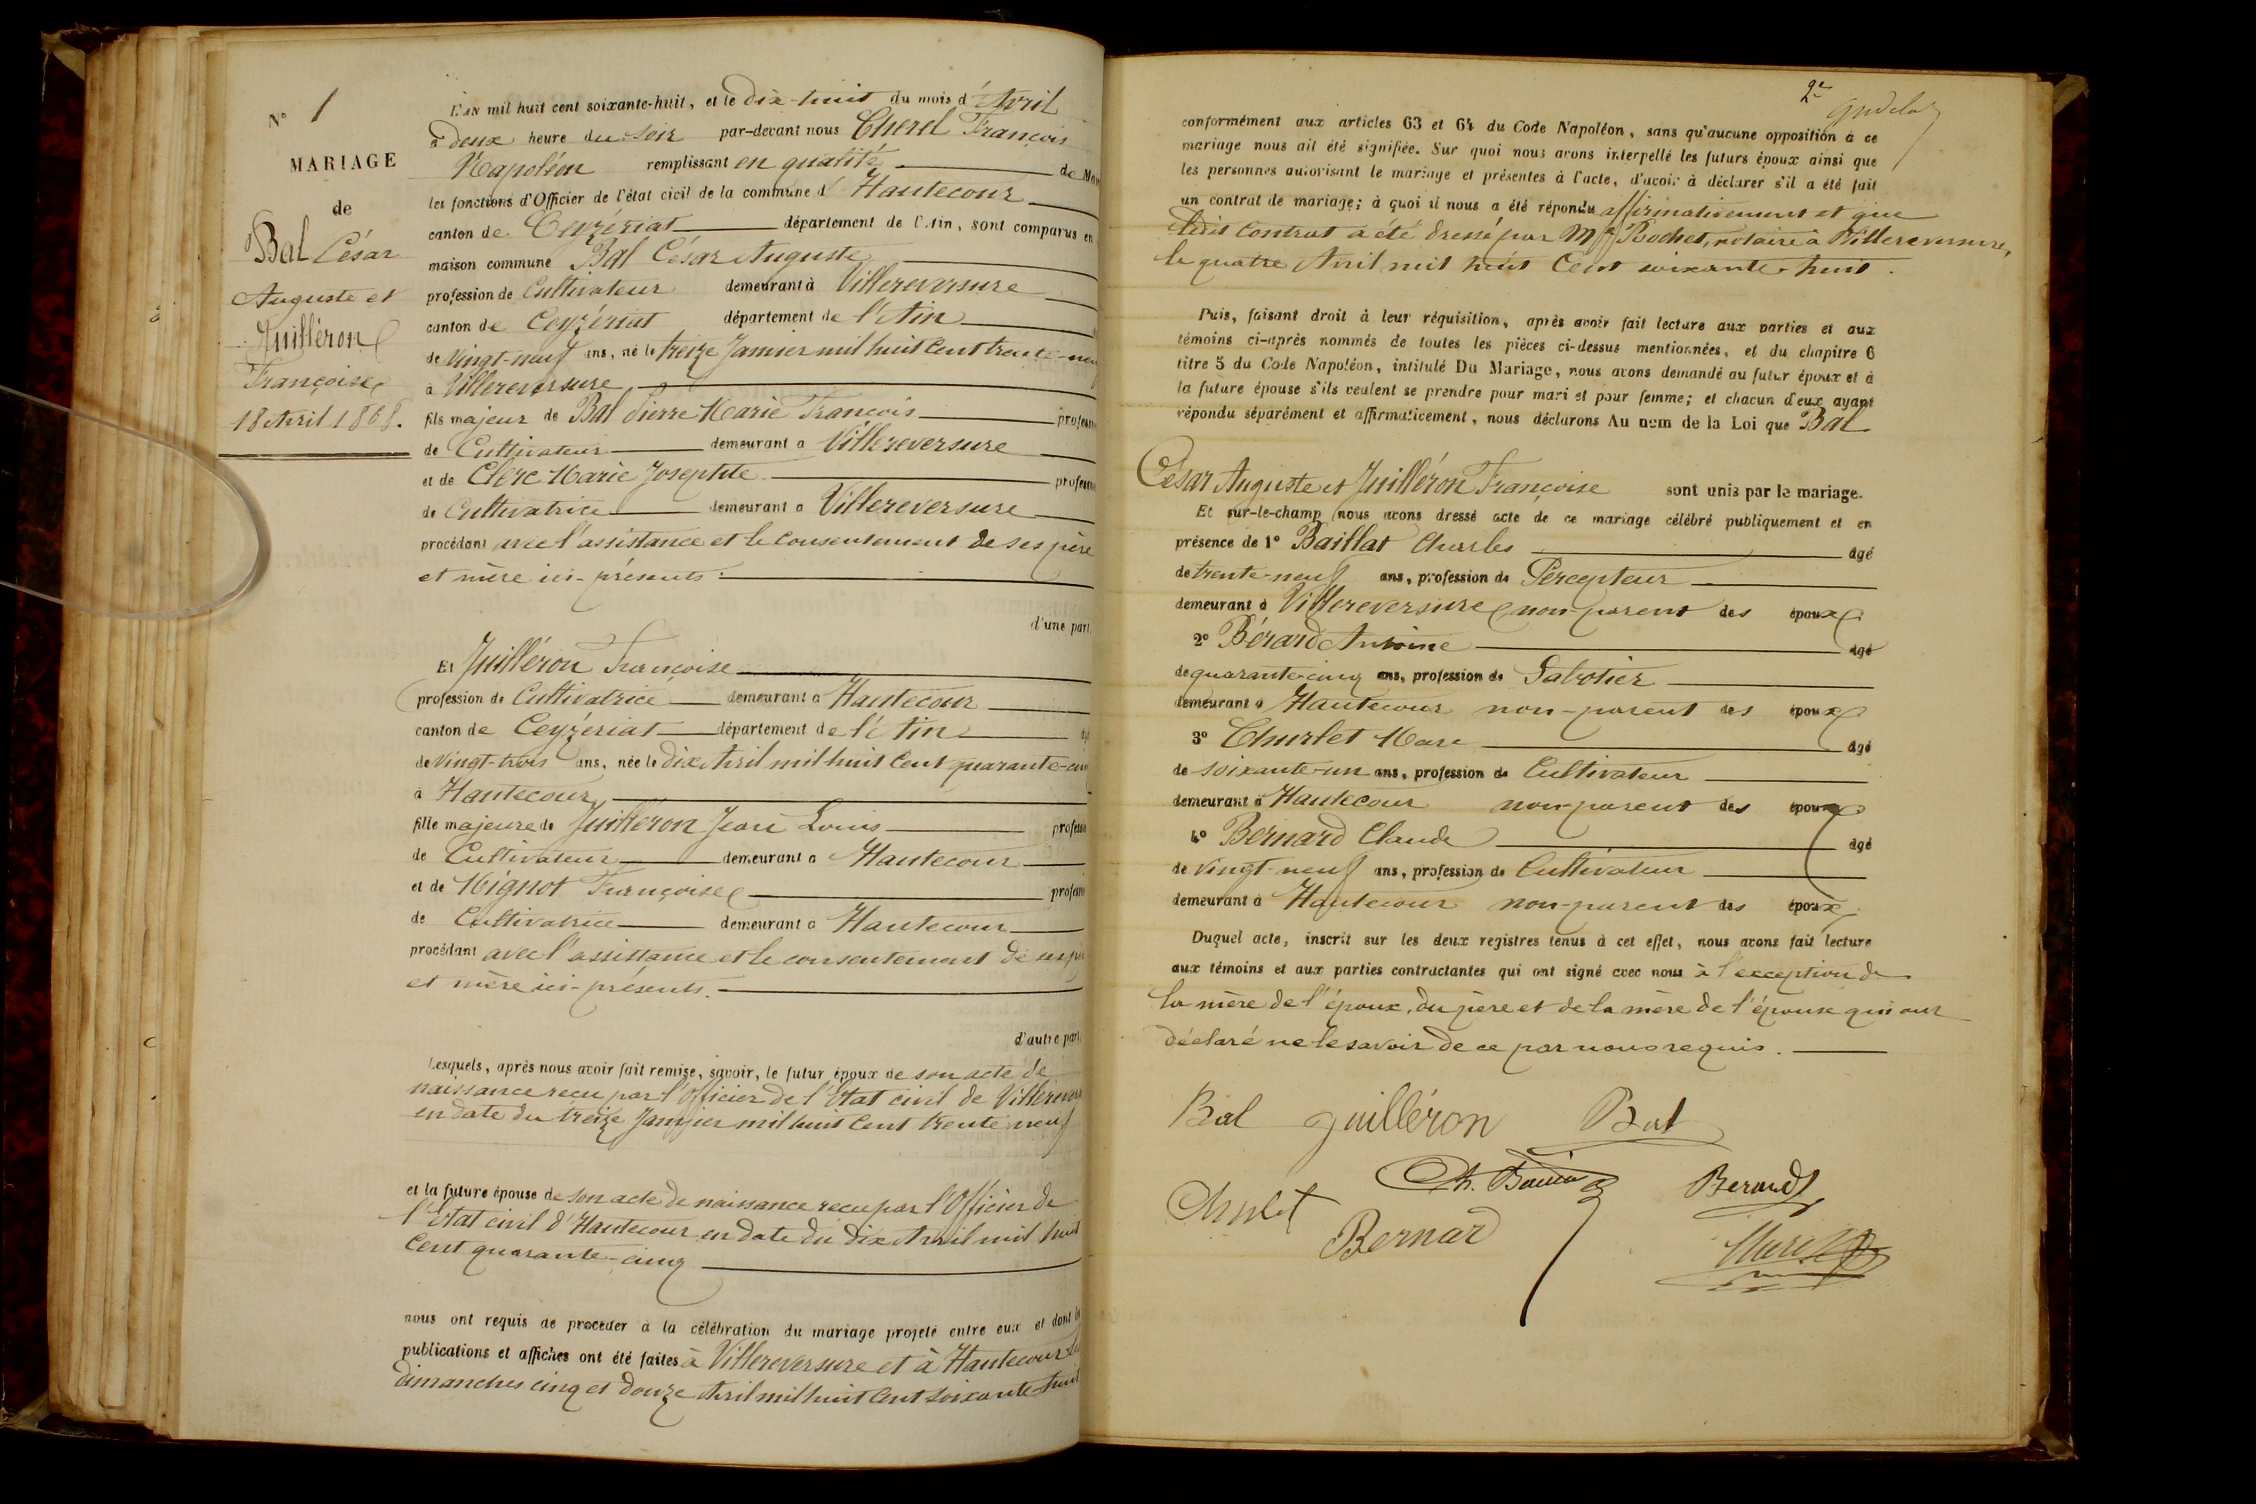 N° 1
MARIAGE
de
Bal César
Auguste et
Juilléron
Françoise
18 Avril 1868.
L'AN mil huit cent soixante-huit, et le dix-huit du mois d'Avril
à deux heure du soir par-devant nous Cherel François
Napoléon remplissant en qualité de Mai
les fonctions d'Officier de l'état civil de la commune d'Hautecour
canton de Ceyzériat département de l'Ain, sont comparus en
maison commune Bal César Auguste
profession de Cultivateur demeurant à Villereversure
canton de Ceyzériat département de l'Ain
de vingt-neuf ans, né le treize Janvier mil huit Cent trente-neuf
à Villereversure
fils majeur de Bal Pierre Marie François profession
de Cultivateur demeurant à Villereversure
et de Clerc Marie Josephte profession
de Cultivatrice demeurant à Villereversure
procédant avec l'assistance et le consentement de ses père
et mère ici-présents.
d'une part,
Et Juilléron Françoise
profession de Cultivatrice demeurant à Hautecour
canton de Ceyzériat département de l'Ain
de vingt-trois ans, née le dix Avril mil huit Cent quarante-cinq
à Hautecour
fille majeure de Juilléron Jean Louis profession
de Cultivateur demeurant à Hautecour
et de Mignot Françoise profession
de Cultivatrice demeurant à Hautecour
procédant avec l'assistance et le consentement de ses père
et mère ici-présents.
d'autre part,
Lesquels, après nous avoir fait remise, savoir, le futur époux de son acte de
naissance reçu par l'Officier de l'Etat civil de Villerevers
en date du treize Janvier mil huit Cent trente neuf
et la future épouse de son acte de naissance reçu par l'Officier de
l'Etat civil d'Hautecour en date du dix Avril mil huit
Cent quarante-cinq
nous ont requis de procéder à la célébration du mariage projeté entre eux et dont les
publications et affiches ont été faites à Villereversure et à Hautecour les
dimanches cinq et douze Avril mil huit Cent soixante-huit
2e
conformément aux articles 63 et 64 du Code Napoléon, sans qu'aucune opposition à ce
mariage nous ait été signifiée. Sur quoi nous avons interpellé les futurs époux ainsi que
les personnes autorisant le mariage et présentes à l'acte, d'avoir à déclarer s'il a été fait
un contrat de mariage; à quoi il nous a été répondu affirmativement et que
ledit Contrat a été dressé par Me Bochet, notaire à Villereversure,
le quatre Avril mil huit Cent soixante-huit.
Puis, faisant droit à leur réquisition, après avoir fait lecture aux parties et aux
témoins ci-après nommés de toutes les pièces ci-dessus mentionnées, et du chapitre 6
titre 5 du Code Napoléon, intitulé Du Mariage, nous avons demandé au futur époux et à
la future épouse s'ils veulent se prendre pour mari et pour femme; et chacun d'eux ayant
répondu séparément et affirmativement, nous déclarons Au nom de la Loi que Bal
César Auguste et Juilléron Françoise sont unis par le mariage.
Et sur-le-champ nous avons dressé acte de ce mariage célébré publiquement et en
présence de 1° Baillat Charles âgé
de trente-neuf ans, profession de Percepteur
demeurant à Villereversure non-parent des époux
2° Bérard Antoine âgé
de quarante-cinq ans, profession de Sabotier
demeurant à Hautecour non-parent des époux
3° Churlet Marc âgé
de soixante-un ans, profession de Cultivateur
demeurant à Hautecour non-parent des époux
4° Bernard Claude âgé
de vingt-neuf ans, profession de Cultivateur
demeurant à Hautecour non-parent des époux
Duquel acte, inscrit sur les deux registres tenus à cet effet, nous avons fait lecture
aux témoins et aux parties contractantes qui ont signé avec nous à l'exception de
la mère de l'époux, du père et de la mère de l'épouse qui ont
déclaré ne le savoir de ce par nous requis.
Bal Juilléron Bal
Churlet Berard
Bernard